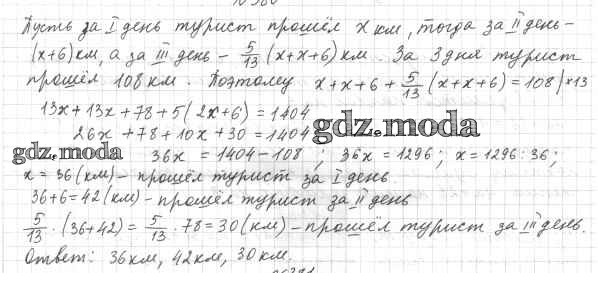 Пусть за I день турист прошёл x км, тогда за II день –
(x+6) км, а за III день – 5/13 (x+x+6) км. За 3 дня турист
прошёл 108 км. Поэтому x+x+6+5/13 (x+x+6) = 108 |×13
13x+13x+78+5(2x+6) = 1404
26x+78+10x+30 = 1404
gdz.moda
gdz.moda
36x = 1404-108 ; 36x = 1296; x = 1296:36;
x = 36 (км) – прошёл турист за I день
36+6=42 (км) – прошёл турист за II день
5/13 · (36+42) = 5/13 · 78 = 30 (км) – прошёл турист за III день.
Ответ: 36 км, 42 км, 30 км.